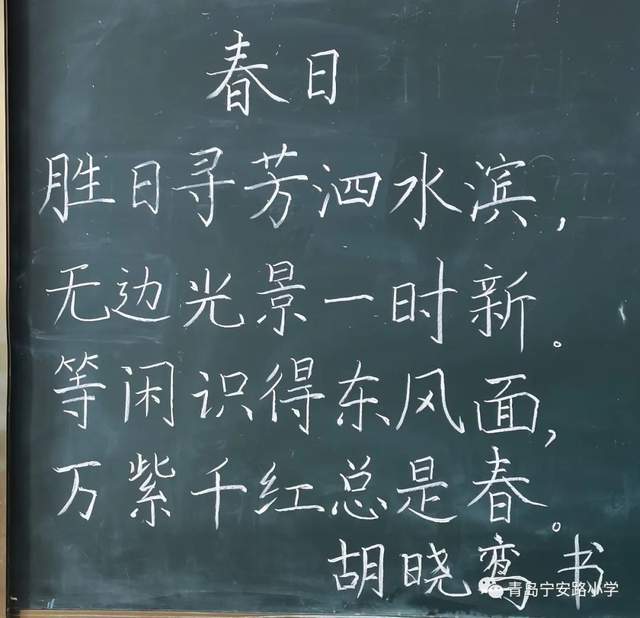 春日
胜日寻芳泗水滨，
无边光景一时新。
等闲识得东风面，
万紫千红总是春。
胡晓鸾书
青岛宁安路小学